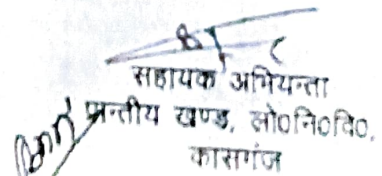 सहायक अभियन्ता
प्रान्तीय खण्ड, लो०नि०वि०,
कासगंज